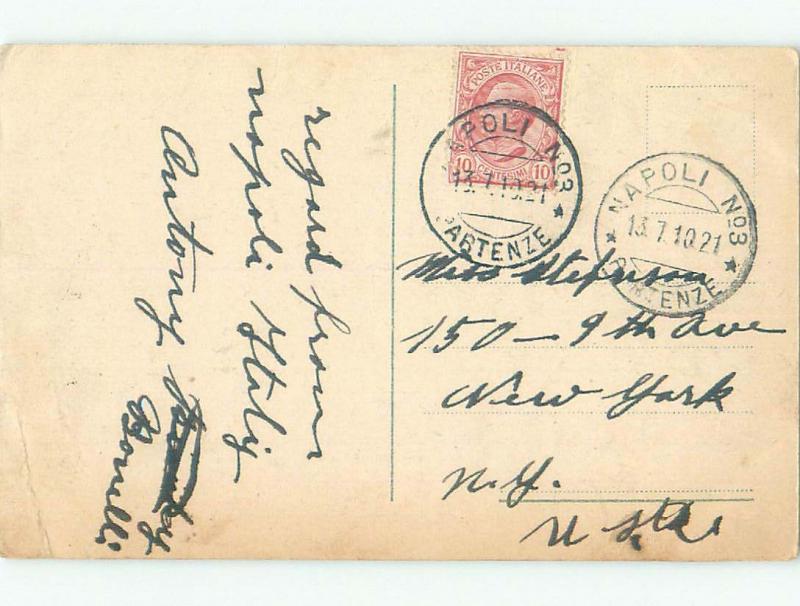 regard from
napoli Italy
Antony
Bonelli
POSTE ITALIANE
10 CENTESIMI 10
NAPOLI No3
13.7.10.21
PARTENZE
NAPOLI No3
13.7.10.21
PARTENZE
Miss
150 - 9th Ave
New York
N.Y.